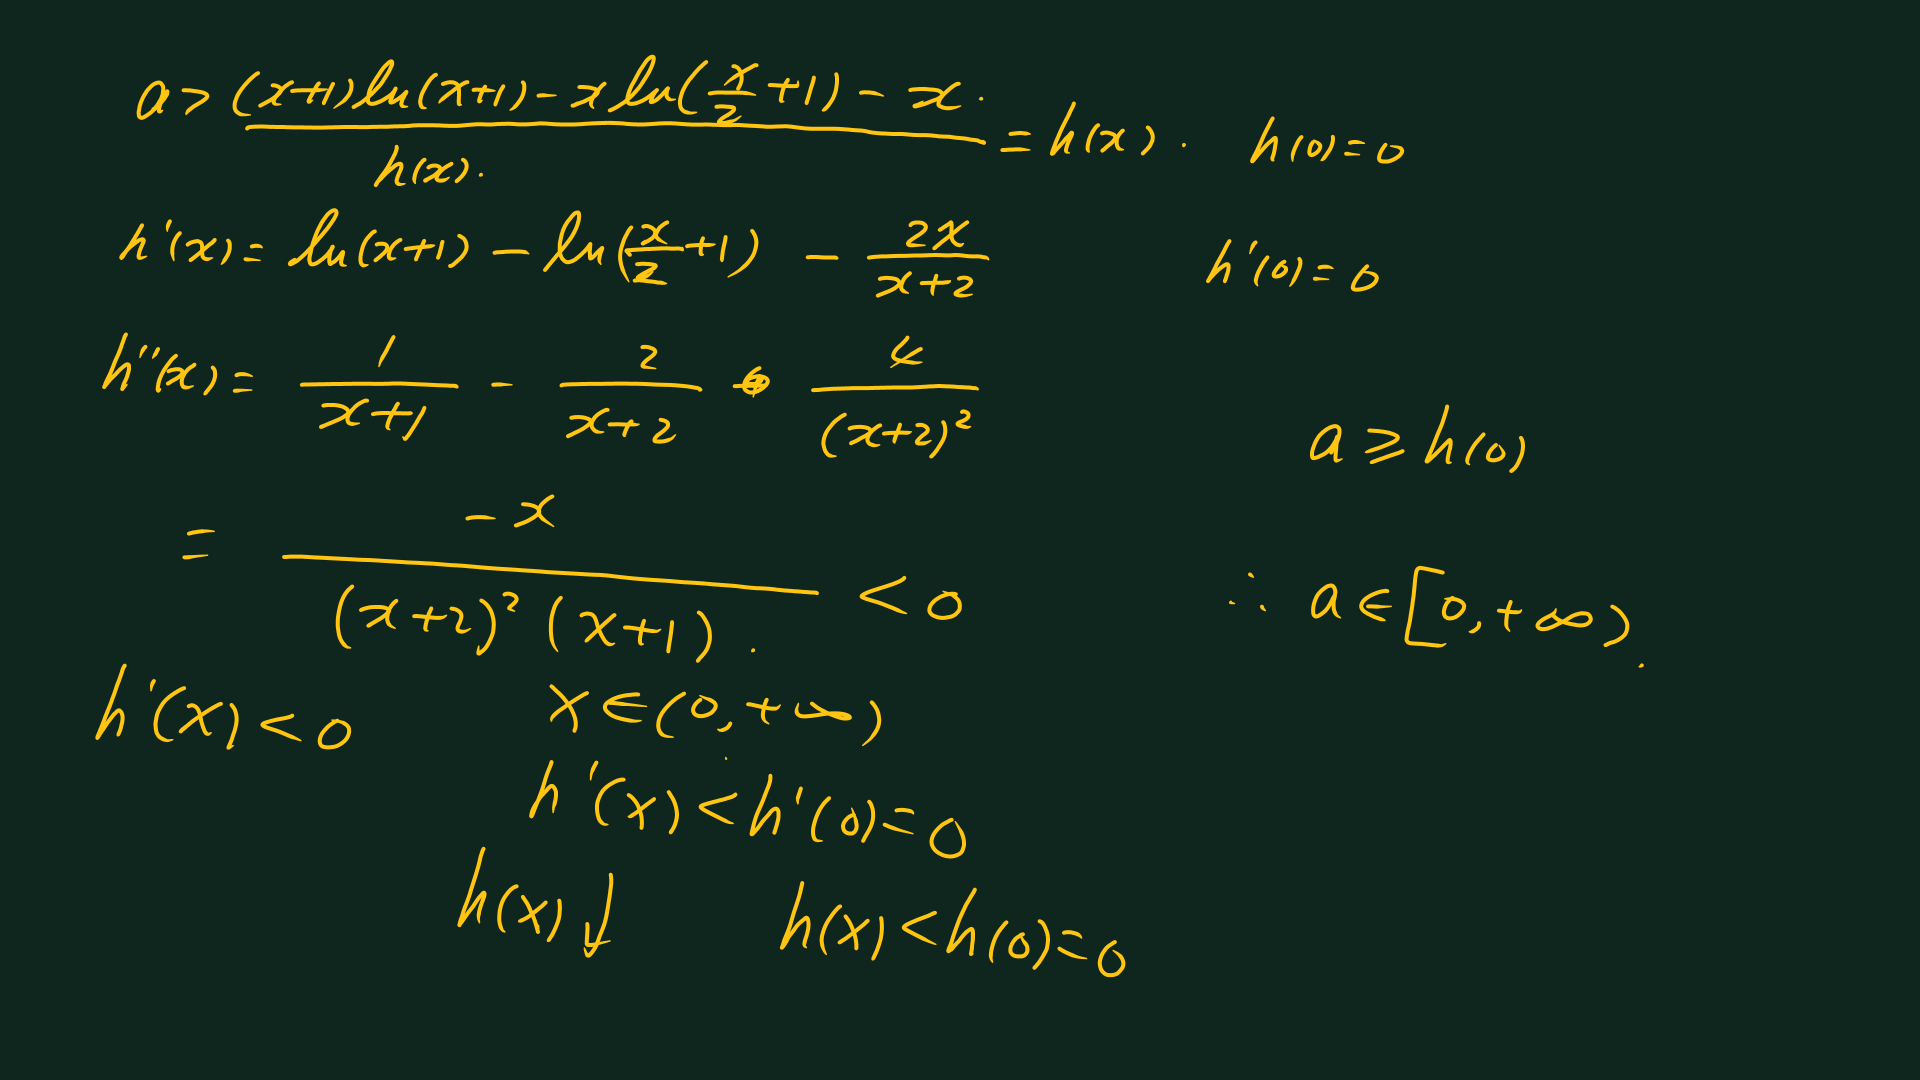 a > (x+1)ln(x+1) - x ln(x/2 + 1) - x. = h(x). h(0)=0
h(x).
h'(x) = ln(x+1) - ln(x/2 + 1) - 2x/(x+2) h'(0)=0
h''(x) = 1/(x+1) - 2/(x+2) 4/(x+2)²
a ≥ h(0)
= -x/((x+2)²(x+1)). < 0
∴ a∈[0,+∞).
h'(x) < 0 x∈(0,+∞)
h'(x) < h'(0)=0
h(x)↓ h(x) < h(0)=0